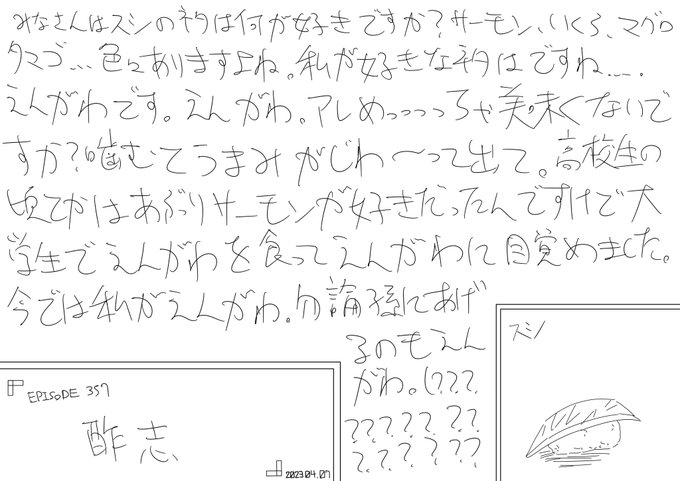 みなさんはスシのネタは何が好きですか？サーモン、いくら、マグロ
タマゴ…色々ありますよね。私が好きなネタはですね….
えんがわです。えんがわ。アレめっっっっちゃ美味くないで
すか？噛むてうまみがじわ〜って出て。高校生の
頃とかはあぶりサーモンが好きだったんですけど大
学生でえんがわを食ってえんがわに目覚めました。
今では私がえんがわ。勿論孫にあげ
るのもえん
がわ。(？？？
？？？？？ ？？
？？？？？？？
EPISODE 357
酢志
2023.04.07
スシ